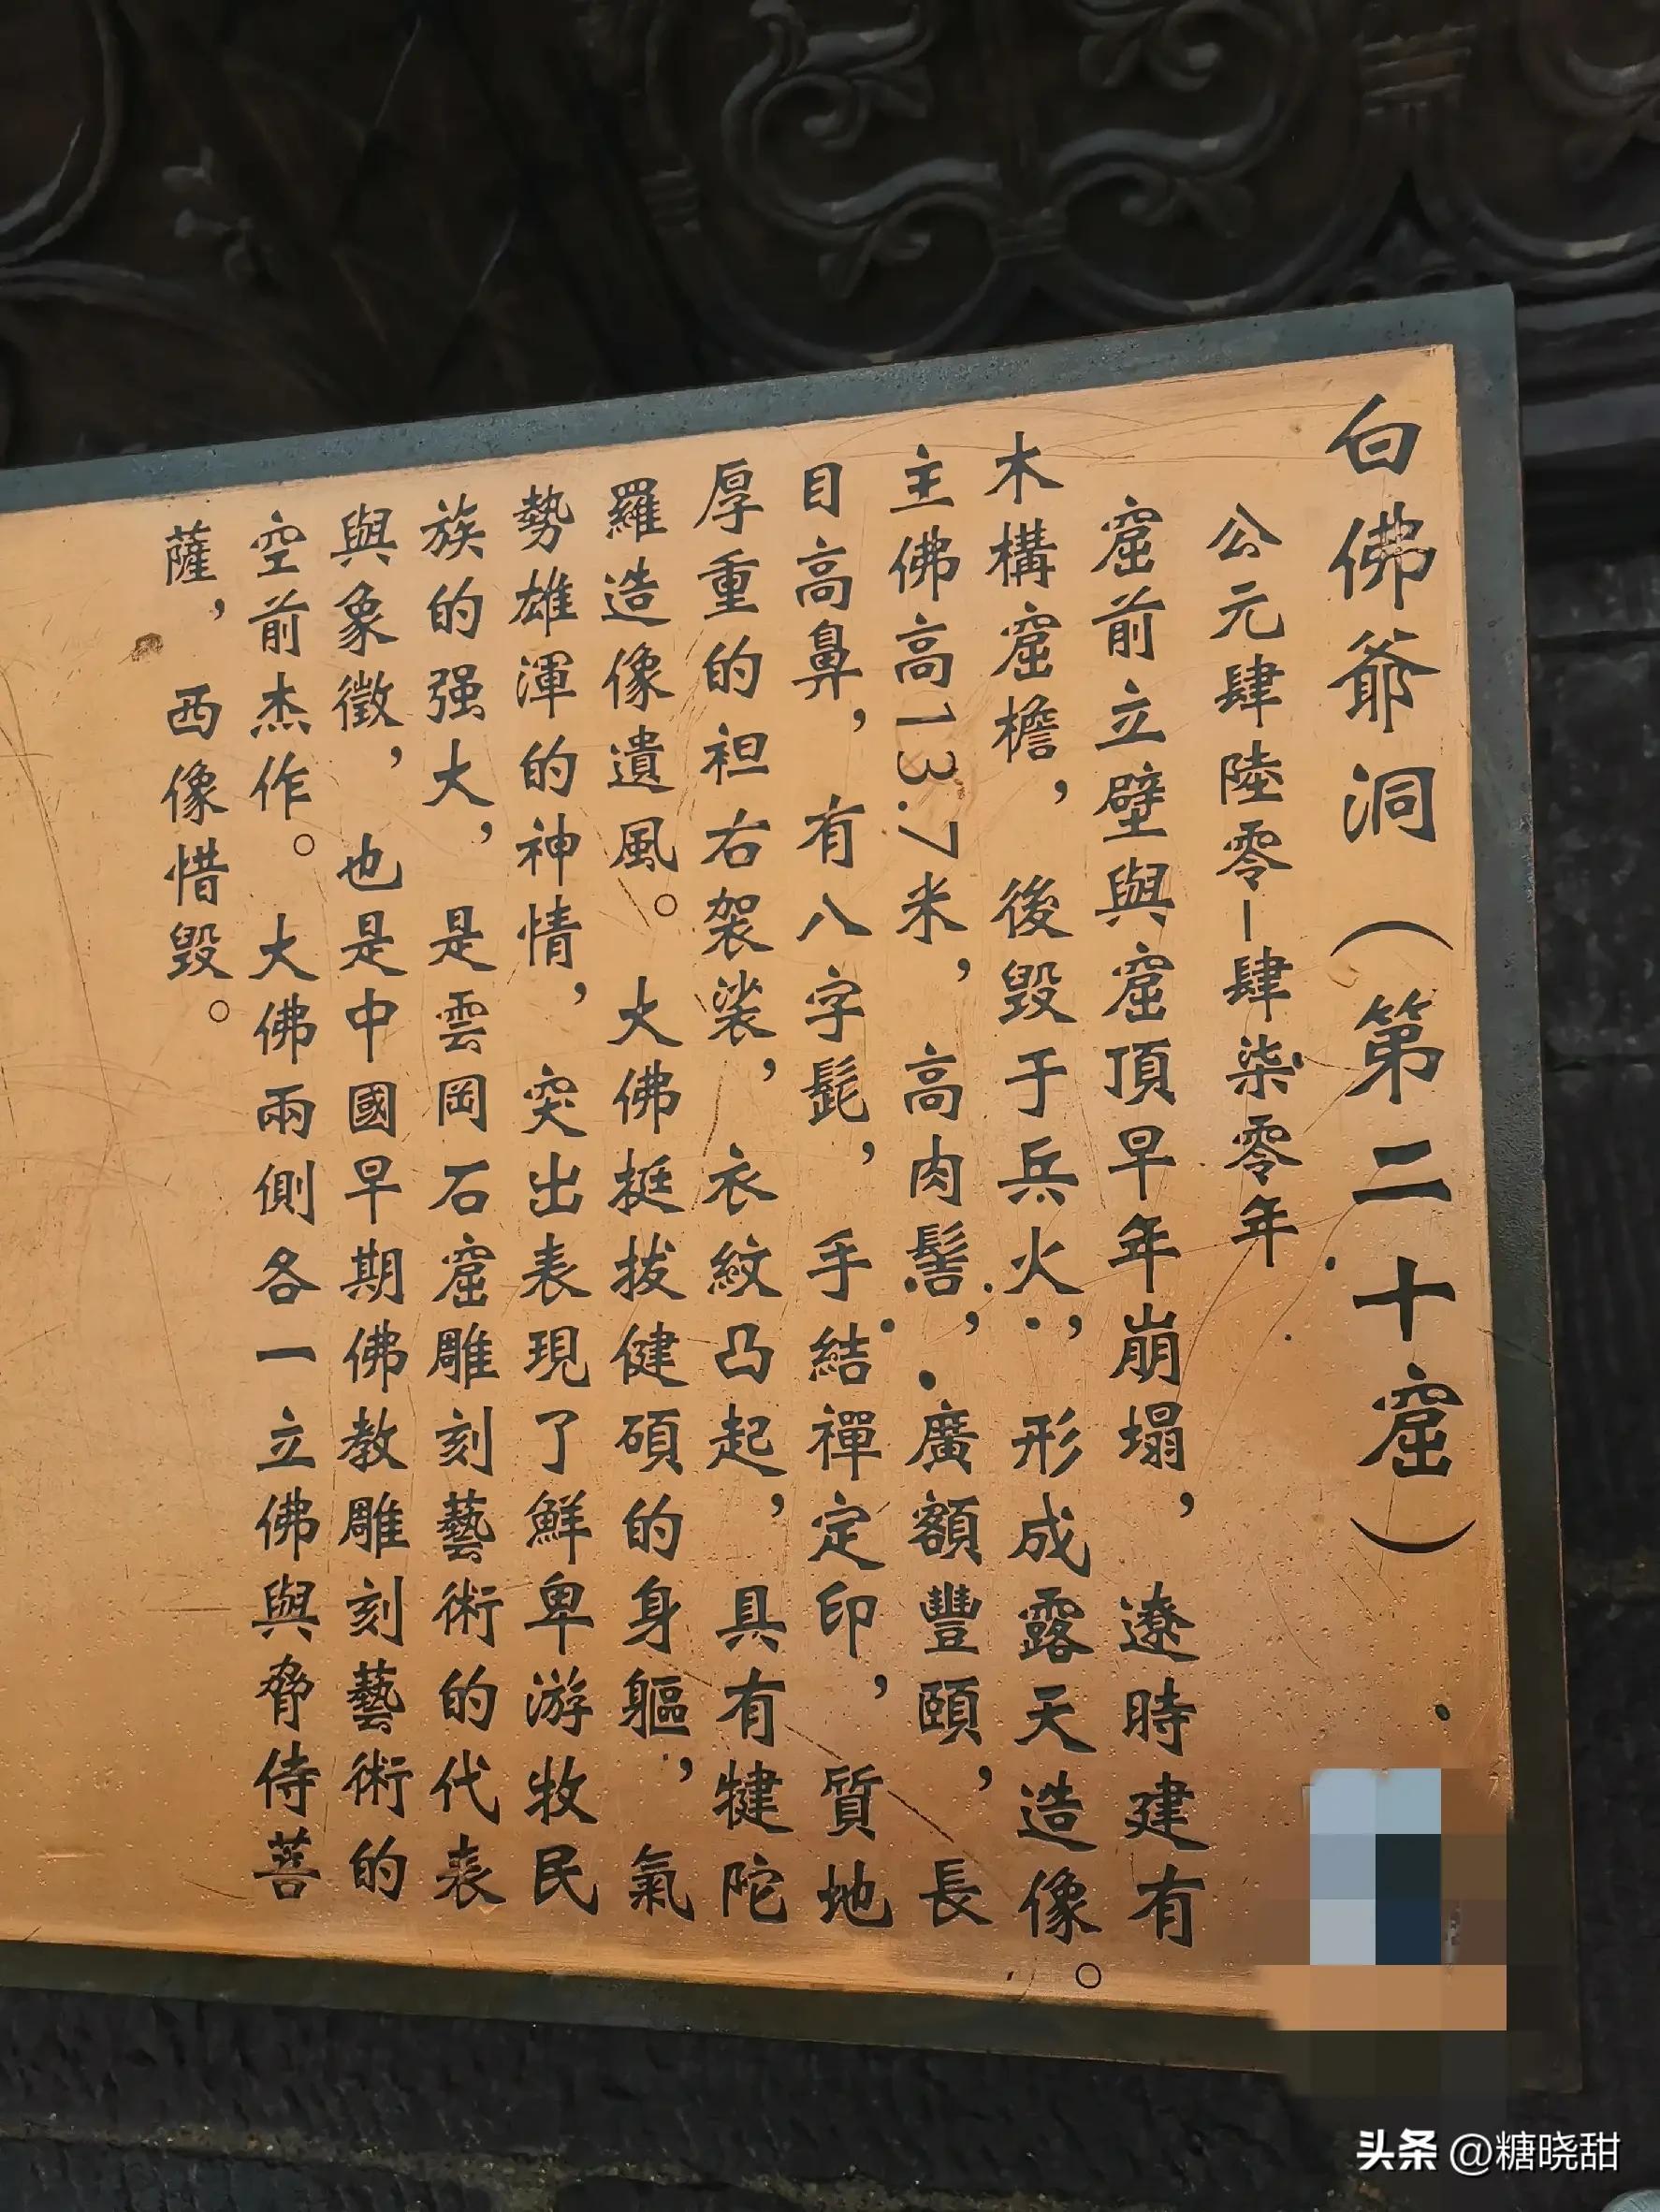 白佛爺洞（第二十窟）
公元肆陸零–肆柒零年
窟前立壁與窟頂早年崩塌，遼時建有
木構窟檐，後毀于兵火，形成露天造像。
主佛高13.7米，高肉髻，廣額豐頤，長
目高鼻，有八字髭，手結禪定印，質地
厚重的袒右袈裟，衣紋凸起，具有犍陀
羅造像遺風。大佛挺拔健碩的身軀，氣
勢雄渾的神情，突出表現了鮮卑游牧民
族的强大，是雲岡石窟雕刻藝術的代表
與象徵，也是中國早期佛教雕刻藝術的
空前杰作。大佛兩側各一立佛與脅侍菩
薩，西像惜毀。
头条 @糖晓甜